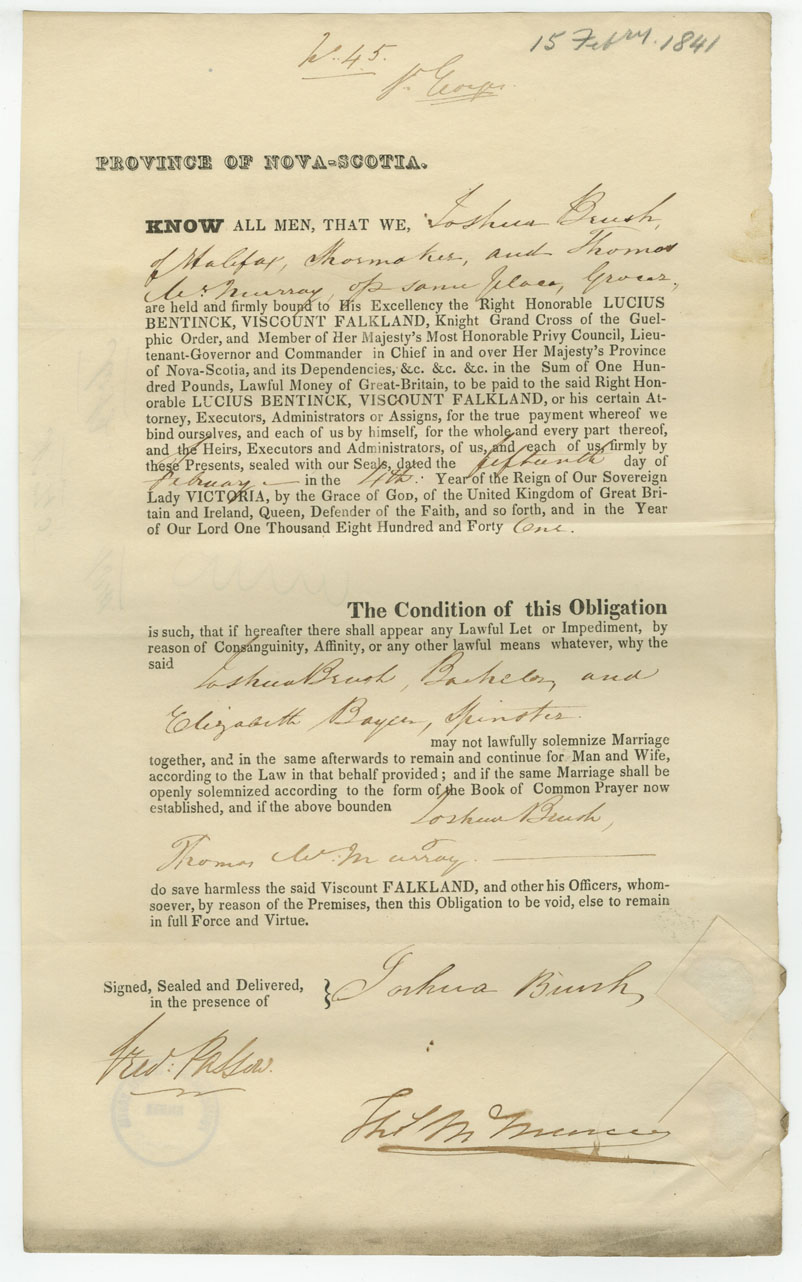 15 Febry. 1841
No. 45.
St. Georges.
PROVINCE OF NOVA-SCOTIA.
KNOW ALL MEN, THAT WE, Joshua Brush,
of Halifax, Shoemaker, and Thomas
Mc.Murray, of same place, Grocer,
are held and firmly bound to His Excellency the Right Honorable LUCIUS
BENTINCK, VISCOUNT FALKLAND, Knight Grand Cross of the Guel-
phic Order, and Member of Her Majesty's Most Honorable Privy Council, Lieu-
tenant-Governor and Commander in Chief in and over Her Majesty's Province
of Nova-Scotia, and its Dependencies, &c. &c. &c. in the Sum of One Hun-
dred Pounds, Lawful Money of Great-Britain, to be paid to the said Right Hon-
orable LUCIUS BENTINCK, VISCOUNT FALKLAND, or his certain At-
torney, Executors, Administrators or Assigns, for the true payment whereof we
bind ourselves, and each of us by himself, for the whole and every part thereof,
and the Heirs, Executors and Administrators, of us, and each of us firmly by
these Presents, sealed with our Seals, dated the fifteenth day of
February in the 4th: Year of the Reign of Our Sovereign
Lady VICTORIA, by the Grace of GOD, of the United Kingdom of Great Bri-
tain and Ireland, Queen, Defender of the Faith, and so forth, and in the Year
of Our Lord One Thousand Eight Hundred and Forty One.
The Condition of this Obligation
is such, that if hereafter there shall appear any Lawful Let or Impediment, by
reason of Consanguinity, Affinity, or any other lawful means whatever, why the
said
Joshua Brush, Bachelor, and
Elizabeth Bayer, Spinster.
may not lawfully solemnize Marriage
together, and in the same afterwards to remain and continue for Man and Wife,
according to the Law in that behalf provided; and if the same Marriage shall be
openly solemnized according to the form of the Book of Common Prayer now
established, and if the above bounden Joshua Brush,
Thomas Mc.Murray.
do save harmless the said Viscount FALKLAND, and other his Officers, whom-
soever, by reason of the Premises, then this Obligation to be void, else to remain
in full Force and Virtue.
Signed, Sealed and Delivered,
in the presence of
Joshua Brush
Fred: Passow.
Thos Mc Murray